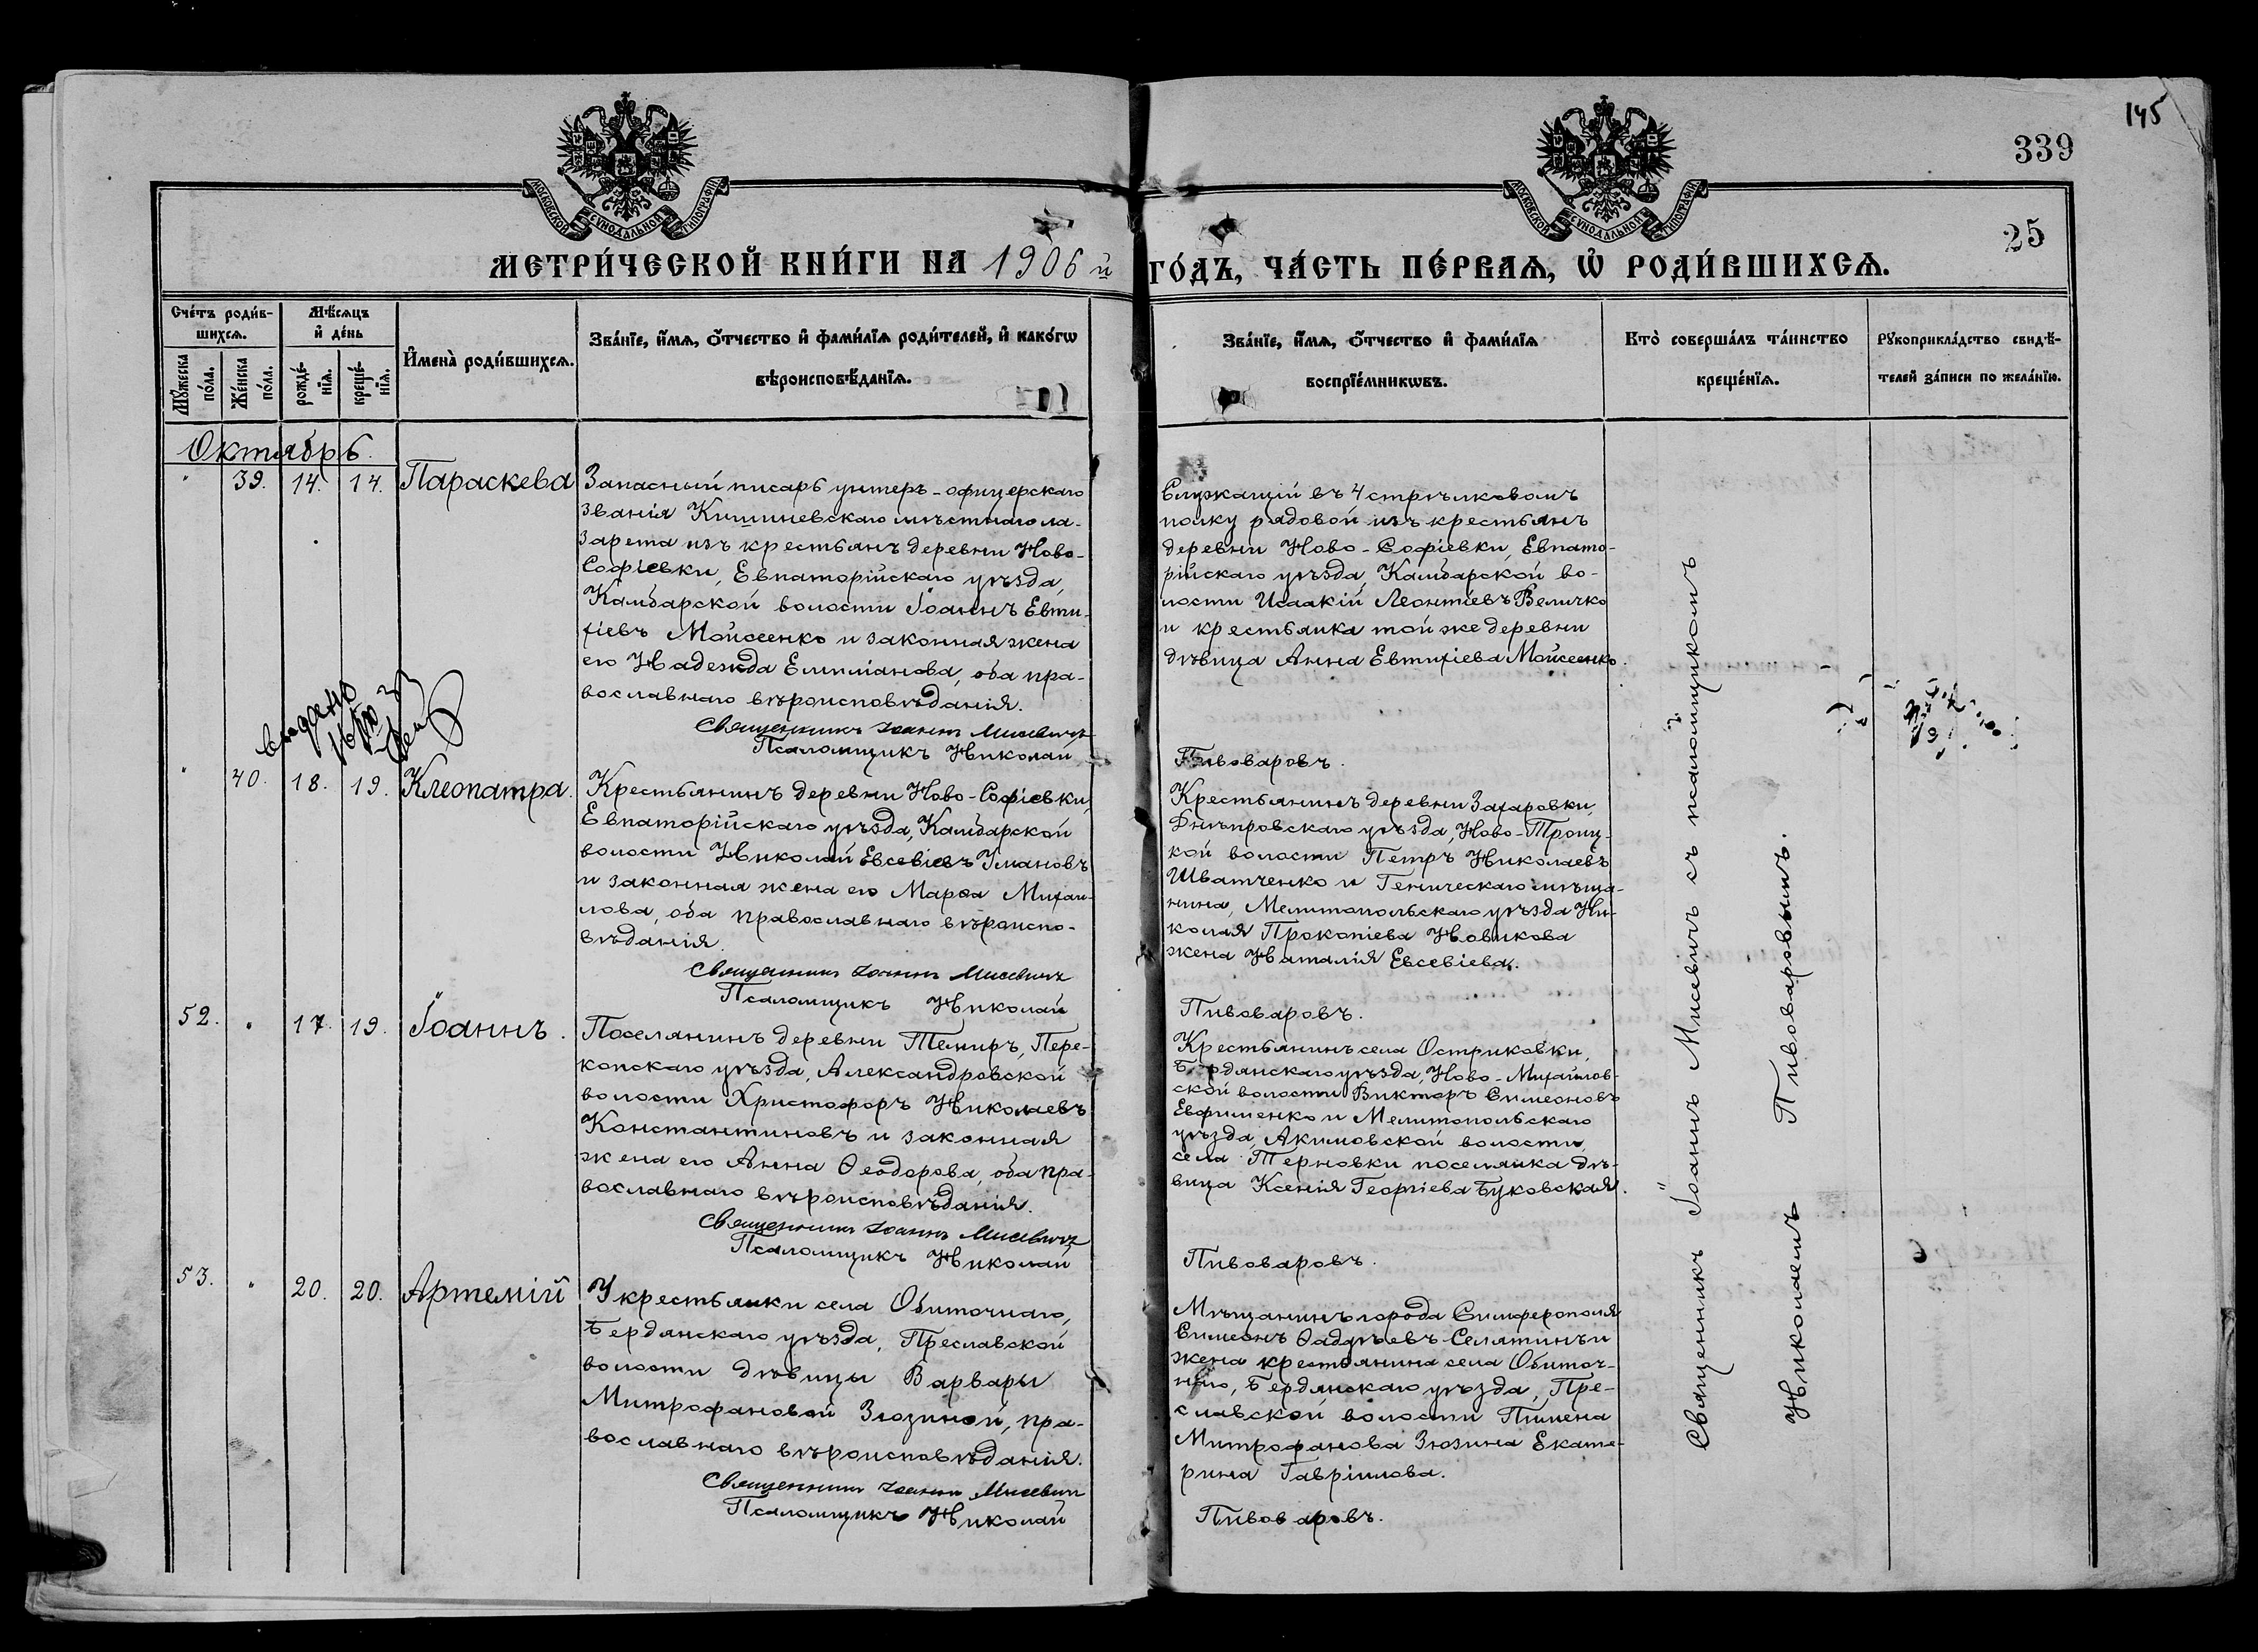 145
339
25
МОСКОВСКОЙ СѴНОДАЛЬНОЙ ТИПОГРАФІИ.
МОСКОВСКОЙ СѴНОДАЛЬНОЙ ТИПОГРАФІИ.
МЕТРИ́ЧЕСКОЙ КНИ́ГИ НА 1906 й ГО́ДЪ, ЧА́СТЬ ПЕ́РВАѦ, Ѡ҆ РОДИ́ВШИХСѦ.
Сче́тъ роди́в-
шихсѧ.
Мꙋ́жеска
по́ла.
Же́нска
по́ла.
Мѣ́сѧцъ
и҆ де́нь
рожде́-
нїѧ.
креще́-
нїѧ.
И҆мена̀ роди́вшихсѧ.
Зва́нїе, и҆́мѧ, ѻ҆́тчество и҆ фами́лїѧ роди́телей, и҆ како́гѡ
вѣроисповѣ́данїѧ.
Зва́нїе, и҆́мѧ, ѻ҆́тчество и҆ фами́лїѧ
воспрїе́мникѡвъ.
Кто̀ соверша́лъ та́инство
креще́нїѧ.
Рꙋкоприкла́дство свидѣ́-
телей за́писи по жела́нїю.
Октябрь.
" 39. 14. 14. Параскева
Запасный писарь унтеръ-офицерскаго
званія Кишиневскаго мѣстнаго ла-
зарета изъ крестьянъ деревни Ново-
Софіевки, Евпаторійскаго уѣзда,
Камбарской волости Іоаннъ Евти-
хіевъ Мойсеенко и законная жена
его Надежда Емиліанова, оба пра-
вославнаго вѣроисповѣданія.
Священникъ Іоаннъ Мисевичъ
Псаломщикъ Николай Пивоваровъ.
Служащій въ 4 стрѣлковомъ
полку рядовой изъ крестьянъ
деревни Ново-Софіевки, Евпато-
рійскаго уѣзда, Камбарской во-
лости Исаакій Леонтіевъ Величко
и крестьянка той же деревни
дѣвица Анна Евтихіева Мойсеенко.
" 40. 18. 19. Клеопатра.
Крестьянинъ деревни Ново-Софіевки,
Евпаторійскаго уѣзда, Камбарской
волости Николай Евсевіевъ Умановъ
и законная жена его Марѳа Михаи-
лова, оба православнаго вѣроиспо-
вѣданія.
Священникъ Іоаннъ Мисевичъ
Псаломщикъ Николай Пивоваровъ.
Крестьянинъ деревни Захаровки,
Днѣпровскаго уѣзда, Ново-Троиц-
кой волости Петръ Николаевъ
Шватченко и Геническаго мѣща-
нина, Мелитопольскаго уѣзда Ни-
колая Прокопіева Новикова
жена Наталія Евсевіева.
52. " 17. 19. Іоаннъ.
Поселянинъ деревни Темиръ, Пере-
копскаго уѣзда, Александровской
волости Христофоръ Николаевъ
Константиновъ и законная
жена его Анна Ѳеодорова, оба пра-
вославнаго вѣроисповѣданія.
Священникъ Іоаннъ Мисевичъ
Псаломщикъ Николай Пивоваровъ.
Крестьянинъ села Остриковки,
Бердянскаго уѣзда, Ново-Михайлов-
ской волости Викторъ Симеоновъ
Ефименко и Мелитопольскаго
уѣзда, Акимовской волости,
села Терновки поселянка дѣ-
вица Ксенія Георгіева Буковская.
53. " 20. 20. Артемій
У крестьянки села Обиточнаго,
Бердянскаго уѣзда, Преславской
волости дѣвицы Варвары
Митрофановой Зюзиной, пра-
вославнаго вѣроисповѣданія.
Священникъ Іоаннъ Мисевичъ
Псаломщикъ Николай Пивоваровъ.
Мѣщанинъ города Симферополя
Симеонъ Ѳадѣевъ Селятинъ и
жена крестьянина села Обиточ-
наго, Бердянскаго уѣзда, Пре-
славской волости Пимена
Митрофанова Зюзина Екате-
рина Гавріилова.
Священникъ Іоаннъ Мисевичъ съ псаломщикомъ
Николаемъ Пивоваровымъ.